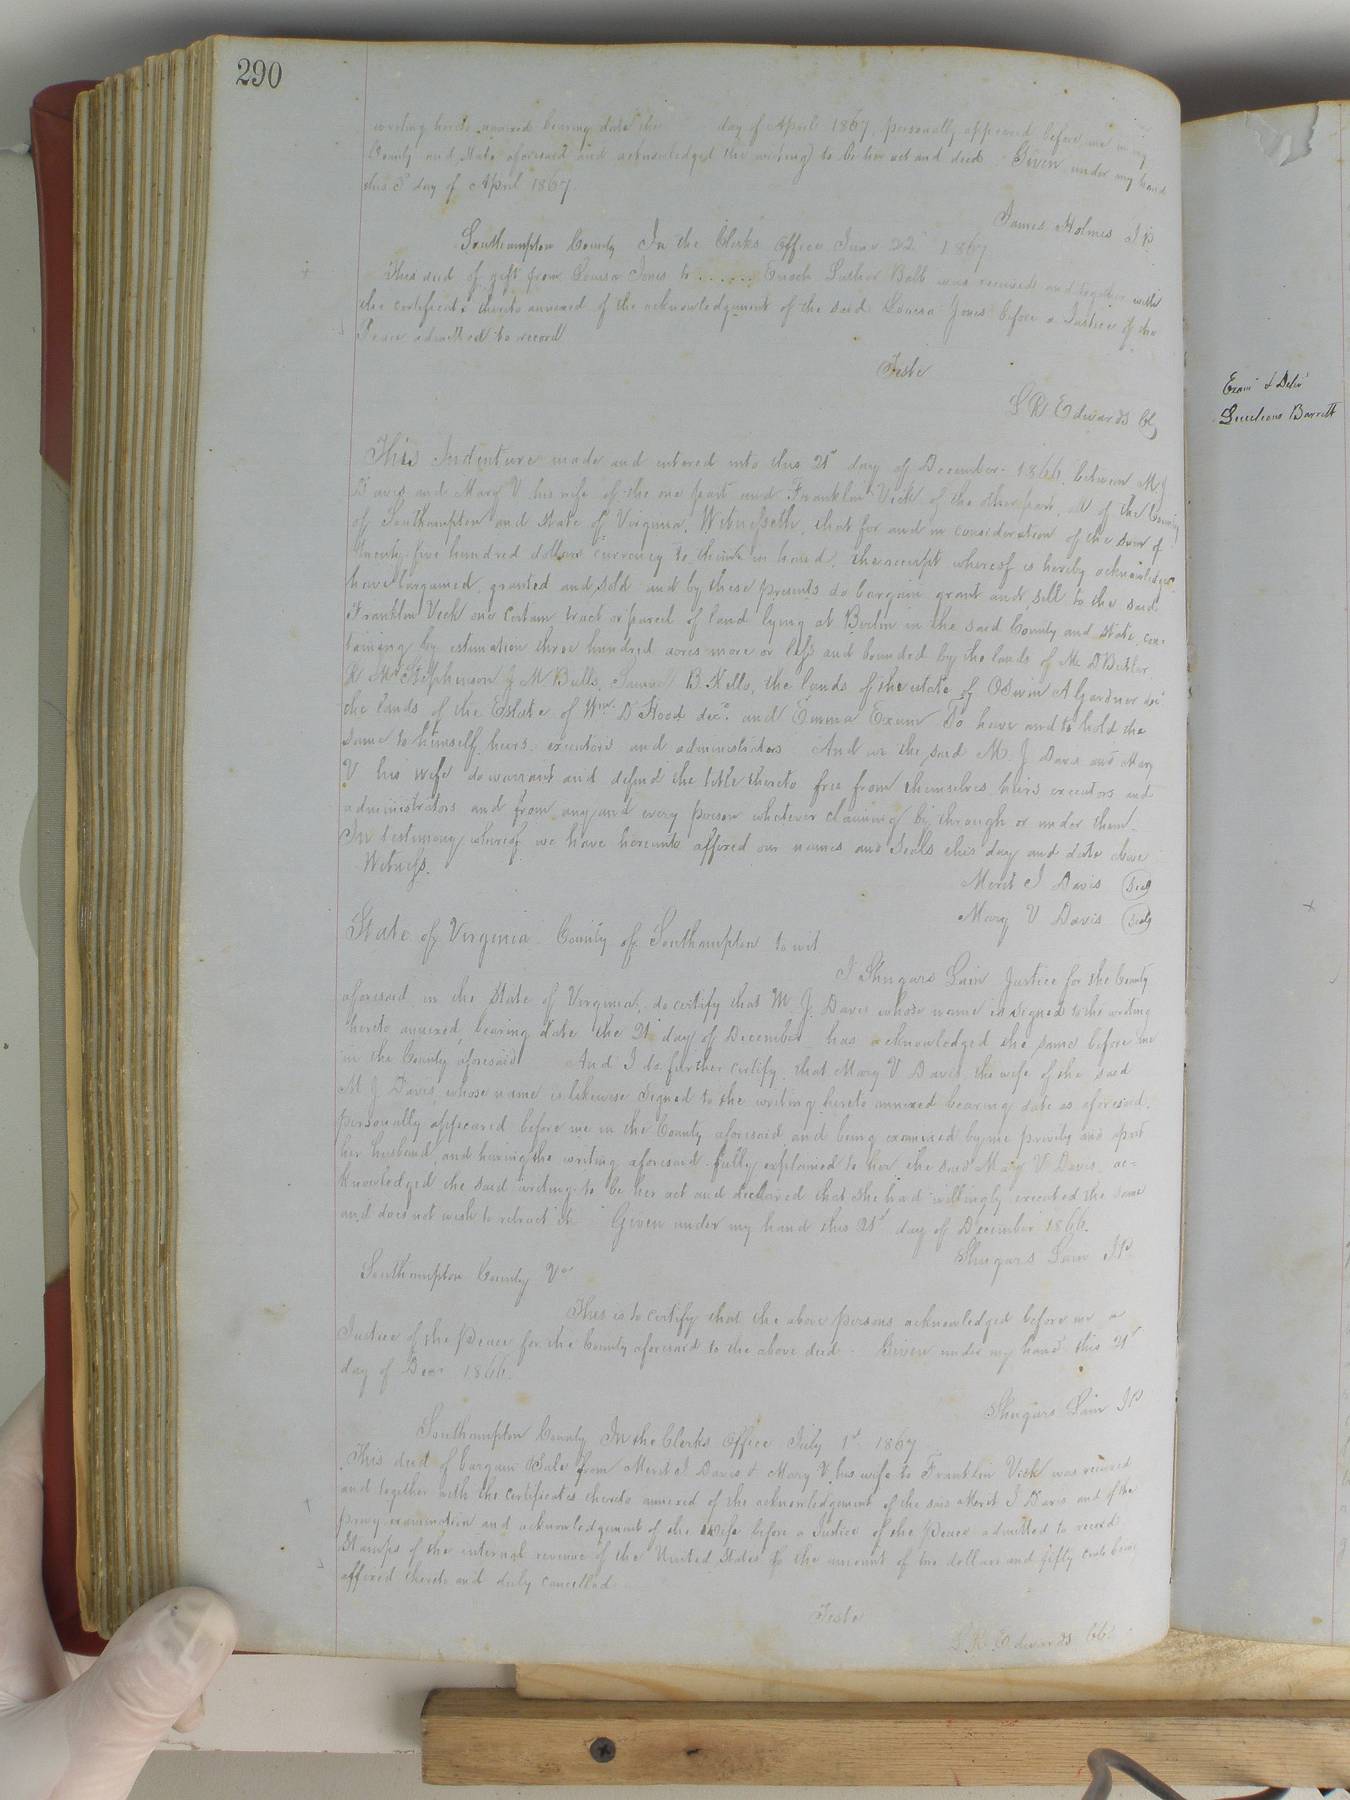 290
writing hereto annexed bearing date the day of April 1867, personally appeared before me in my
County and State aforesaid and acknowledged the writing to be her act and deed. Given under my hand
this 3d day of April 1867.
James Holmes J P
Southampton County In the Clerks Office June 22 1867
This deed of gift from Louisa Jones to ....... Enoch Luther Babb was received and together with
the certificate thereto annexed of the acknowledgement of the said Louisa Jones before a Justice of the
Peace admitted to record
Teste
L R Edwards Cl
This Indenture made and entered into this 21st day of December 1866 between M. J
Davis and Mary V his wife of the one part and Franklin Vick of the other part, all of the County
of Southampton and State of Virginia. Witnesseth, that for and in consideration of the sum of
twenty five hundred dollars currency to them in hand, the receipt whereof is hereby acknowledged
have bargained, granted and sold and by these presents do bargain grant and sell to the said
Franklin Vick one certain tract or parcel of land lying at Berlin in the said County and State, con-
taining by estimation three hundred acres more or less and bounded by the lands of
Stephenson J M Butts, Samuel B. Kello, the lands of the estate of Oswin A Gardner dec
the lands of the Estate of Wm D Hood decd. and Emma Exum To have and to hold the
same to himself, heirs, executors and administrators And we the said M. J Davis and Mary
V his wife do warrant and defend the title thereto free from themselves heirs executors and
administrators and from any and every person whatever claiming by through or under them.
In testimony whereof we have hereunto affixed our names and Seals this day and date above
Witness.
Merit J Davis Seal
Mary V Davis Seal
State of Virginia County of Southampton to wit
I Shugars Lain Justice for the County
aforesaid in the State of Virginia, do certify that M. J. Davis whose name is signed to the writing
hereto annexed, bearing date the 21st day of December has acknowledged the same before me
in the County aforesaid And I do further certify, that Mary V Davis the wife of the said
M J Davis, whose name is likewise signed to the writing hereto annexed bearing date as aforesaid,
personally appeared before me in the County aforesaid and being examined by me privily and apart
her husband, and having the writing aforesaid fully explained to her, she said Mary V Davis, ac-
knowledged the said writing to be her act and declared that she had willingly executed the same
and does not wish to retract it. Given under my hand this 21st day of December 1866.
Shugars Lain J P
Southampton County Va
This is to certify that the above persons acknowledged before me a
Justice of the Peace for the County aforesaid to the above deed. Given under my hand this 21st
day of Decr 1866.
Shugars Lain J P
Southampton County In the Clerks Office July 1st 1867
This deed of bargain & Sale from Merit J Davis & Mary V. his wife to Franklin Vick was received
and together with the certificates thereto annexed of the acknowledgement of the said Merit J Davis and of the
privy examination and acknowledgement of the wife before a Justice of the Peace admitted to record
Stamps of the internal revenue of the United States to the amount of two dollars and fifty cents being
affixed thereto and duly cancelled
Teste
L. R. Edwards Clk
Exam & Deliv
Barrett